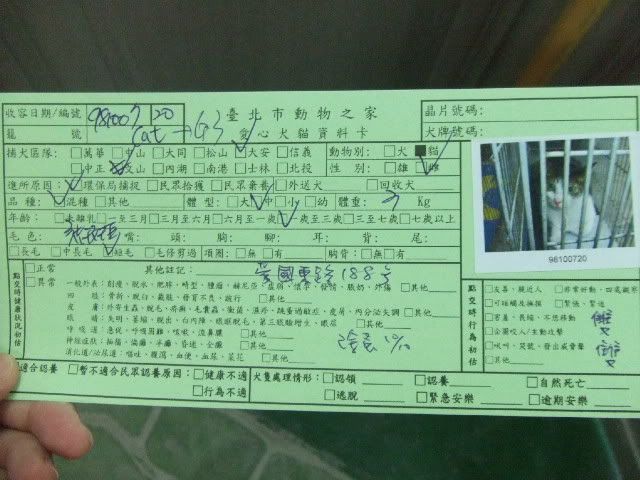 收容日期/編號 981007 20 臺北市動物之家 晶片號碼:
籠 號 Cat → G3 愛心犬貓資料卡 犬牌號碼:
捕犬區隊: □萬華 □中山 □大同 □松山 □大安 □信義 動物別: □犬 ■貓
□中正 □文山 □內湖 □南港 □士林 □北投 性 別: □雄 □雌
進所原因: □環保局捕捉 □民眾拾獲 □民眾棄養 □外送犬 □回收犬
品 種: □混種 □其他 體 型: □大 □中 □小 □幼 體重: 3 Kg
年齡: □未離乳 □一至三月 □三月至六月 □六月至一歲 □一歲至三歲 □三至七歲 □七歲以上
毛 色: 嘴: 頭: 胸: 腳: 耳: 背: 尾:
□長毛 □中長毛 □短毛 □毛修剪過 項圈: □無 □有 胸背: □無 □有
98100720
點交時健康狀況初估
□正常 其他註記: 188号
□異常 一般外表: 削瘦、脫水、肥胖、畸型、腫瘤、赫尼亞、虛弱、懷孕、發情、脹奶、外傷 □其他
四 肢: 骨折、脫臼、截肢、發育不良、跛行 □其他
皮 膚: 外寄生蟲、脫毛、疥癬、毛囊蟲、黴菌、濕疹、跳蚤過敏症、皮屑、內分泌失調 □其他
眼 睛: 失明、萎縮、脫出、白內障、眼瞼脫毛、第三眼瞼增生、眼屎 □其他
呼 吸 道: 急促、呼吸困難、咳嗽、流鼻膿 □其他
神經症狀: 抽搐、偏癱、半癱、昏迷、全癱 □其他
消化道/泌尿道: 嘔吐、腹瀉、血便、血尿、菜花 □其他
點交時行為初估
□友善、親近人 □非常好動、四處觀察
□可碰觸及撫摸 □緊張、緊迫
□害羞、畏縮、不想移動
□企圖咬人/主動攻擊
□吠叫、哭號、發出威脅聲
□其他
□適合認養 □暫不適合民眾認養原因: □健康不適 犬隻處理情形: □認領 □認養 □自然死亡
□行為不適 □逃脫 □緊急安樂 □逾期安樂